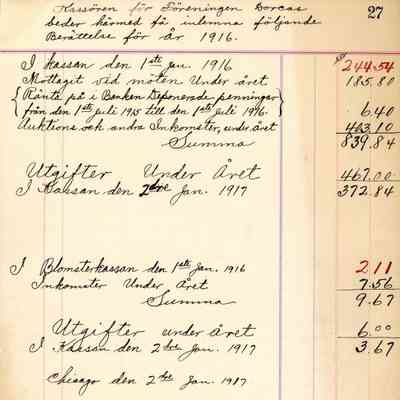 27
Kassören för Föreningen Dorcas
beder härmed få inlemna följande
Berättelse för år 1916.
I kassan den 1sta Jan. 1916 244.54
Mottagit vid möten Under året 185.80
{Ränte på i Banken Deponerade penningar
från den 1sta Juli 1915 till den 1sta Juli 1916.} 6.40
Auktions och andra Inkomster, under året 403.10
Summa 839.84
Utgifter Under Året 467.00
I Kassan den 2dre Jan. 1917 372.84
I Blomsterkassan den 1sta Jan. 1916 2.11
Inkomster Under Året 7.56
Summa 9.67
Utgifter under året 6.00
I Kassan den 2dre Jan. 1917 3.67
Chicago den 2dre Jan. 1917